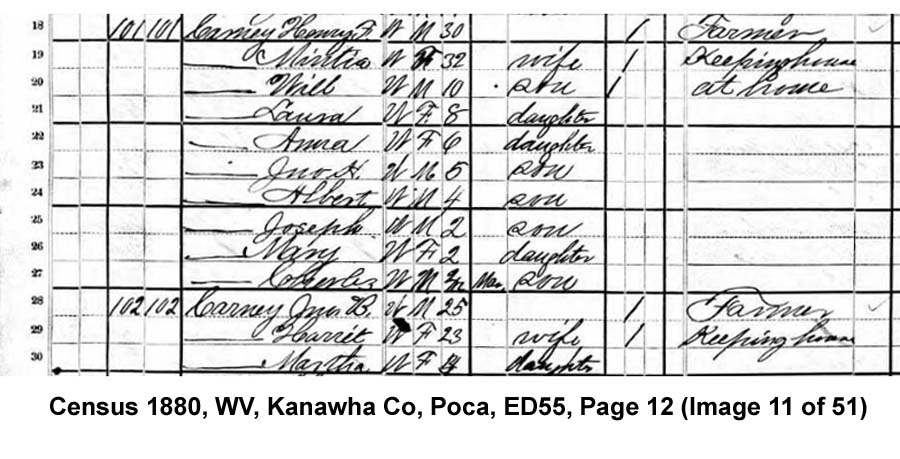 18 101 101 Carney Henry F. W M 30 1 Farmer
19 —— Mintia W F 32 wife 1 Keeping house
20 —— Will W M 10 son 1 at home
21 —— Laura W F 8 daughter
22 —— Anna W F 6 daughter
23 —— Jno. H. W M 5 son
24 —— Albert W M 4 son
25 —— Joseph W M 2 son
26 —— Mary W F 2 daughter
27 —— Charles W M Mar. son
28 102 102 Carney Jno. B. W M 25 1 Farmer
29 —— Harriet W F 23 wife 1 Keeping house
30 —— Martha W F 4 daughter
Census 1880, WV, Kanawha Co, Poca, ED55, Page 12 (Image 11 of 51)